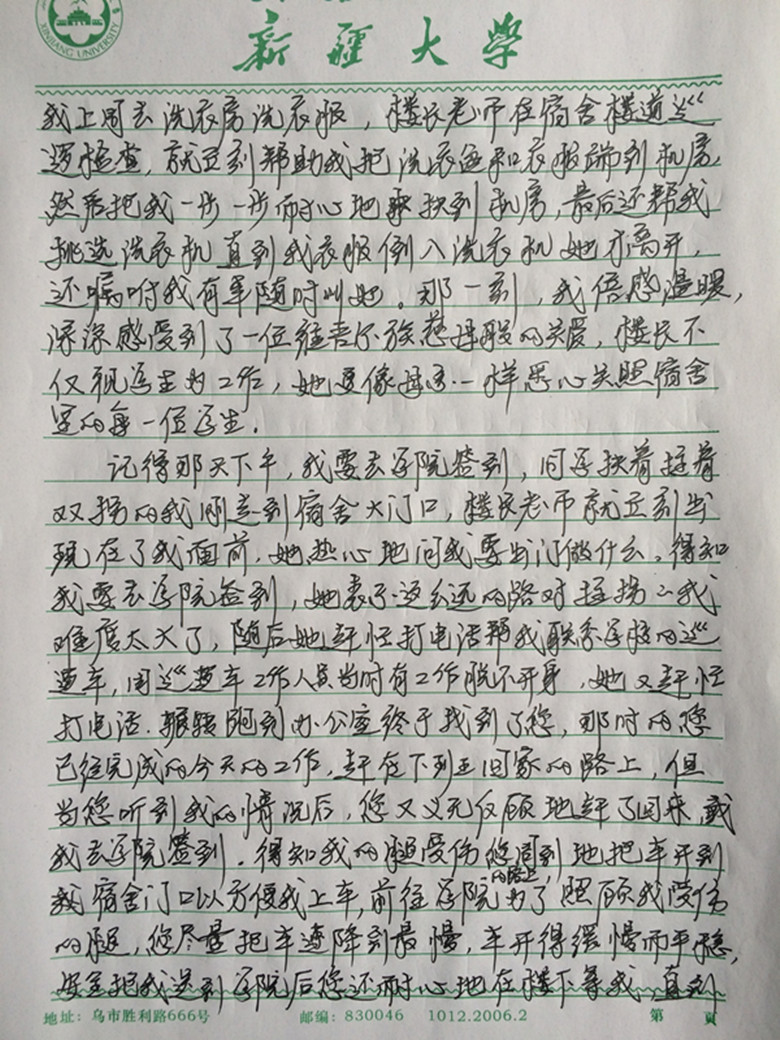 XINJIANG UNIVERSITY
新疆大学
我上周去洗衣房洗衣服，楼长老师在宿舍楼道巡
逻检查，就立刻帮助我把洗衣盆和衣服端到机房，
然后把我一步一步耐心地扶到机房，最后还帮我
挑选洗衣机直到我衣服倒入洗衣机她才离开，
还嘱咐我有事随时叫她。那一刻，我倍感温暖，
深深感受到了一位维吾尔族慈母般的关爱，楼长不
仅视学生为工作，她更像母亲一样悉心关照宿舍
里的每一位学生。
记得那天下午，我要去学院签到，同学扶着拄着
双拐的我刚走到宿舍大门口，楼长老师就立刻出
现在了我面前，她热心地问我要出门做什么。得知
我要去学院签到，她表示这么远的路对拄拐的我
难度太大了，随后她赶忙打电话帮我联系学校的巡
逻车，因巡逻车工作人员当时有工作脱不开身，她又赶忙
打电话.辗转跑到办公室终于找到了您，那时的您
已经完成的今天的工作，赶在下班回家的路上，但
当您听到我的情况后，您又义无反顾地赶了回来，载
我去学院签到。得知我的腿受伤您周到地把车开到
我宿舍门口以方便我上车，前往学院的路上，为了照顾我受伤
的腿，您尽量把车速降到最慢，车开得缓慢而平稳，
安全把我送到学院后您还耐心地在楼下等我，直到
地址：乌市胜利路666号 邮编：830046 1012.2006.2 第 页